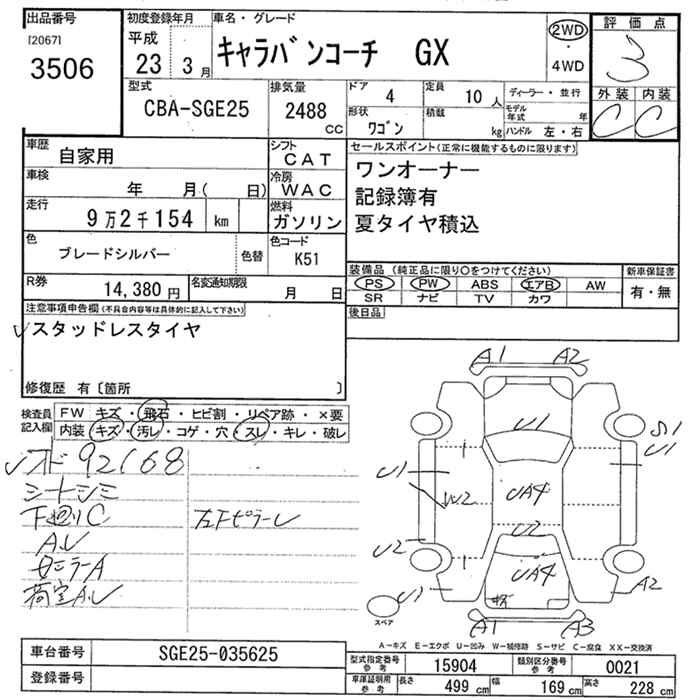 出品番号
[2067]
3506
初度登録年月
平成
23 3月
車名・グレード
キャラバンコーチ GX
2WD
・
4WD
評価点
3
外装 内装
C C
型式
CBA-SGE25
排気量
2488
CC
ドア
4
定員
10人
形状
ワゴン
積載
kg
ディーラー・並行
モデル年式 年
ハンドル 左・右
車歴
自家用
シフト
CAT
車検
年 月( 日)
冷房
WAC
走行
9万2千154 km
燃料
ガソリン
色
ブレードシルバー
色替
色コード
K51
R券
14,380円
名変通知期限
月 日
セールスポイント(正常に機能するものに限ります)
ワンオーナー
記録簿有
夏タイヤ積込
装備品(純正品に限り○をつけてください)
PS PW ABS エアB AW
SR ナビ TV カワ
新車保証書
有・無
後日品
注意事項申告欄(不具合内容等は具体的に記入して下さい)
スタッドレスタイヤ
修復歴 有〔箇所 〕
検査員
記入欄
FW キズ・飛石・ヒビ割・リペア跡・×要
内装 キズ・汚レ・コゲ・穴・スレ・キレ・破レ
92168
シートシミ
下廻りC
左Fピラーレ
A1 A2
U1
S1
U1
U1
W2
UA4
U2
U2
UA4
U1
A2
A1 A3
スペア
A-キズ E-エクボ U-凹み W-補修跡 S-サビ C-腐食 XX-交換済
車台番号
SGE25-035625
登録番号
型式指定番号
参考
15904
類別区分番号
参考
0021
車庫証明用
参考
長さ
499 cm
幅
169 cm
高さ
228 cm